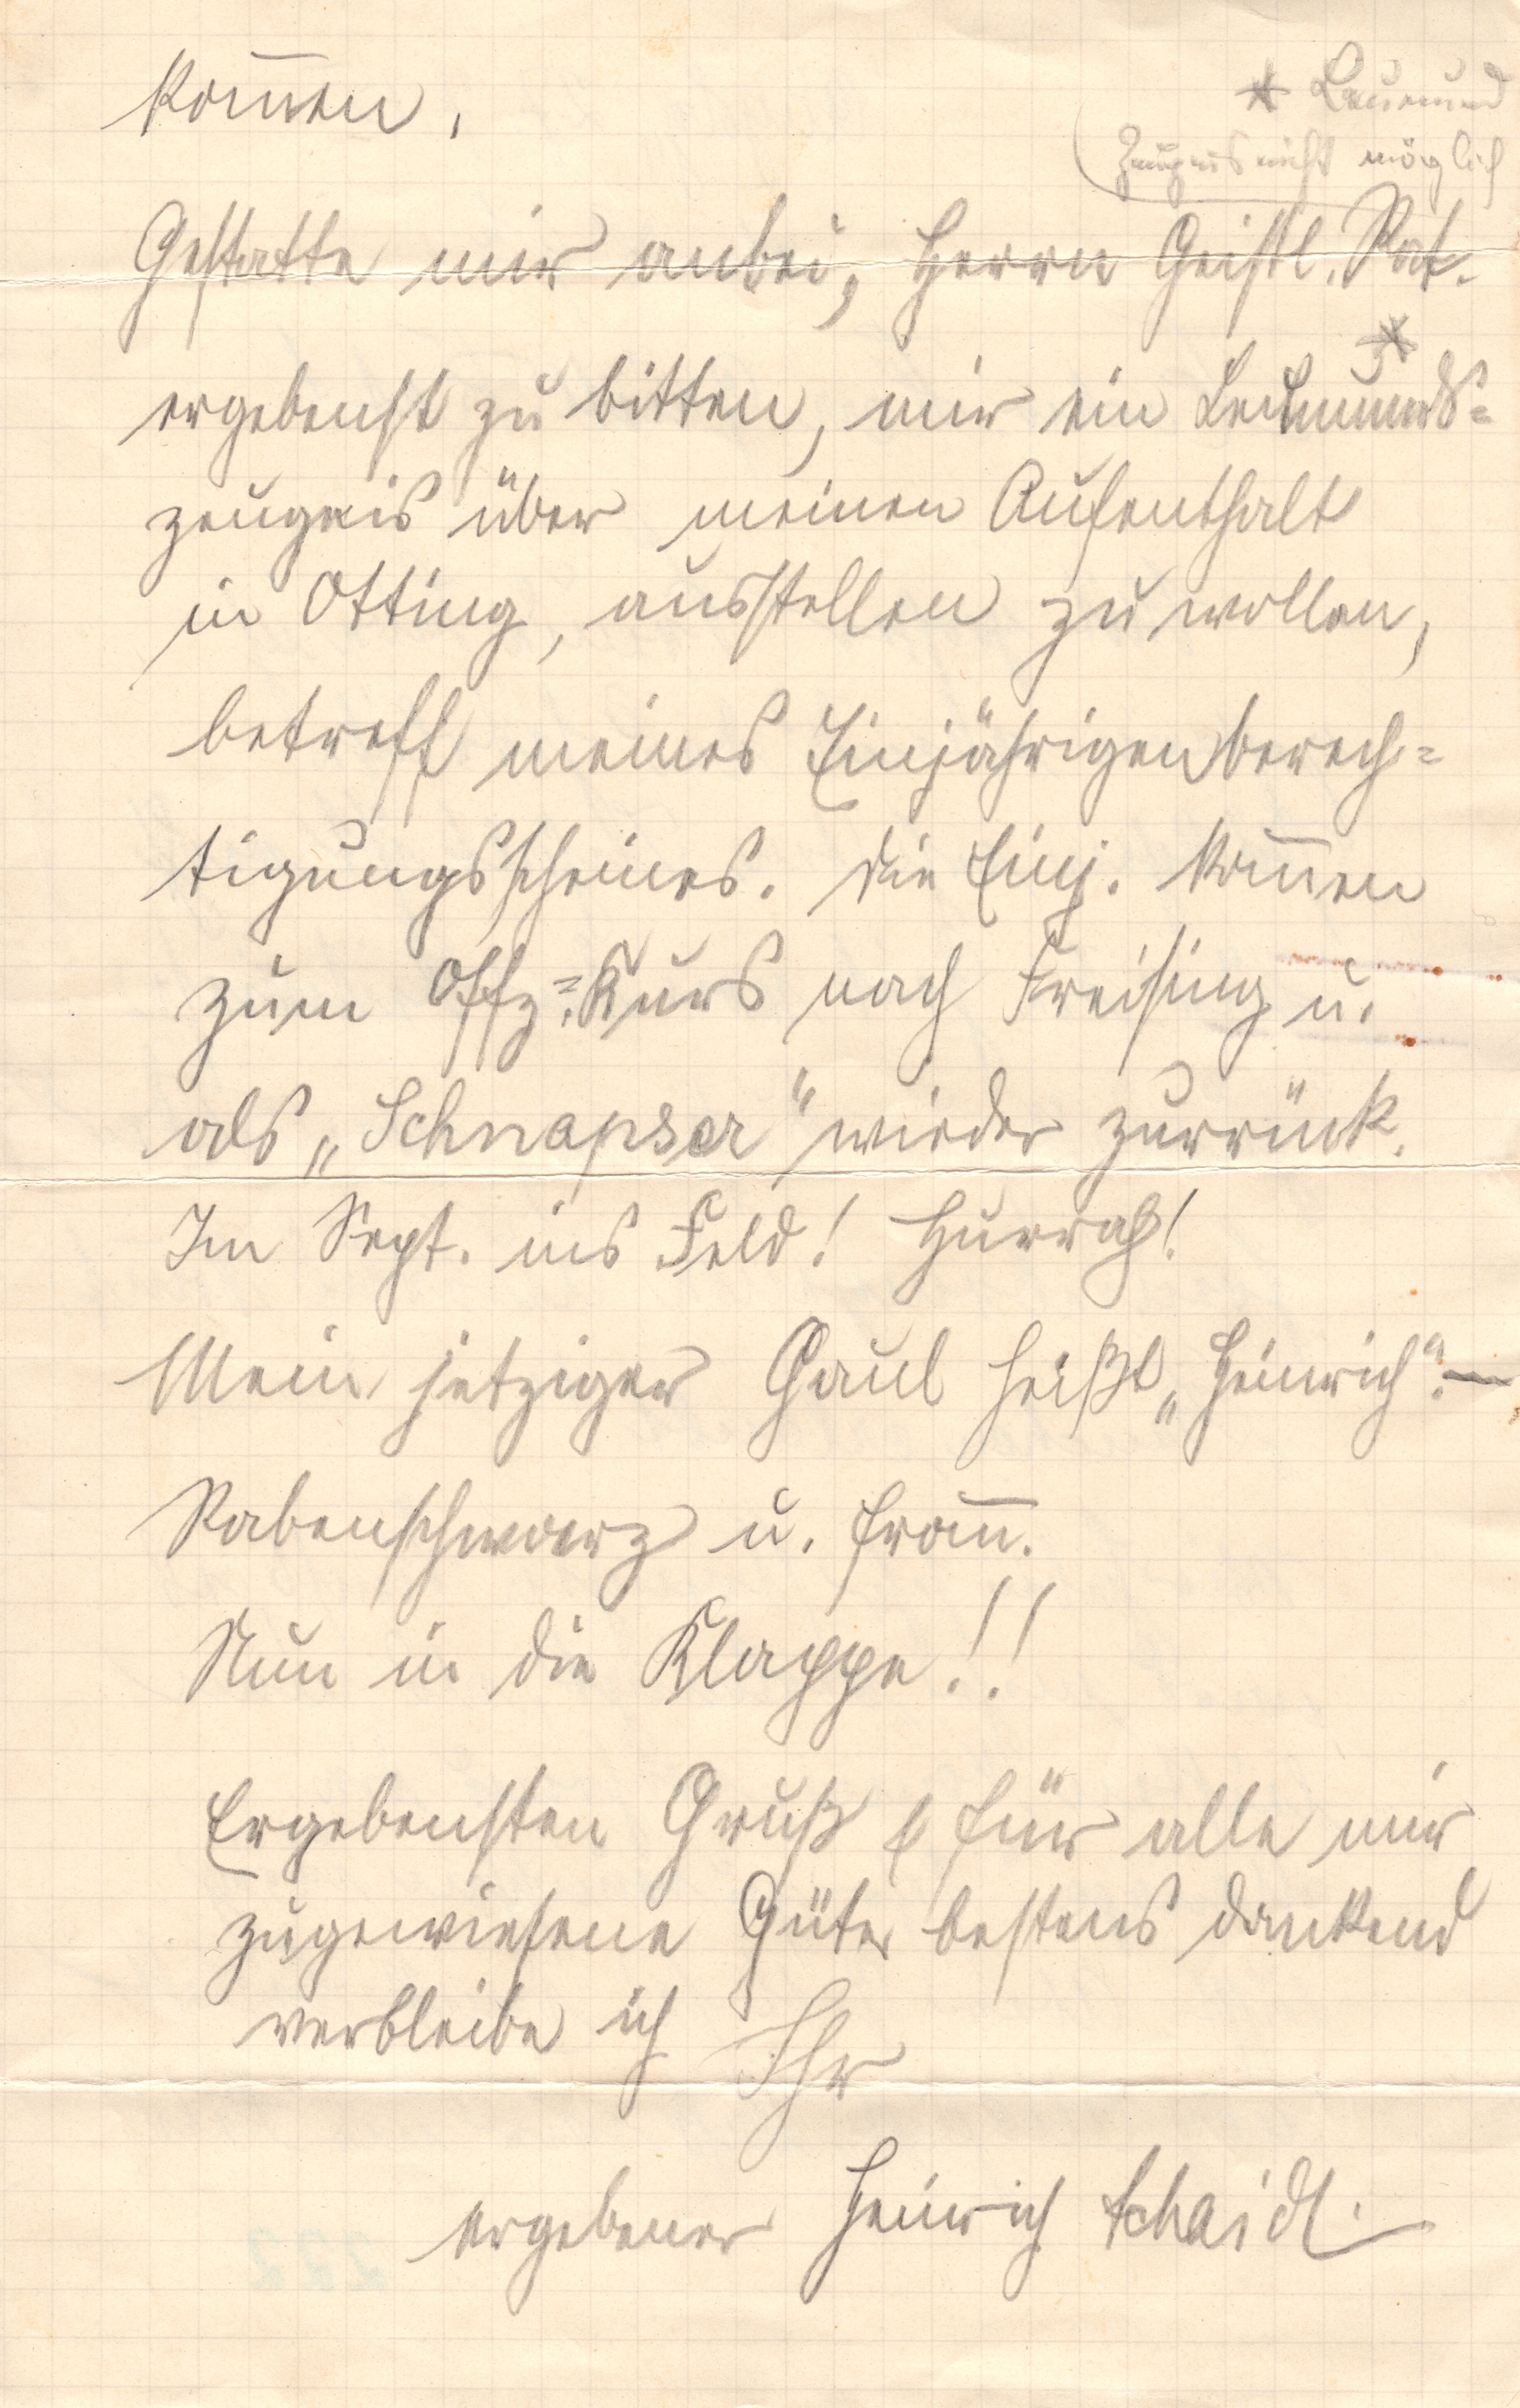 kom̅en.
* Leumund
Zeugnis nicht möglich
Gestatte mir anbei, Herrn Geistl. Rat.
ergebenst zu bitten, mir ein Leumunds=
*
zeugnis über meinen Aufenthalt
in Otting, ausstellen zu wollen,
betreff meines Einjährigenberech=
tigungsscheines. Die Einj. kom̅en
zum Offz.=Kurs nach Freising u.
als „Schnapser“ wieder zurrück.
Im Sept. ins Feld! Hurrah!
Mein jetziger Gaul heißt „Heinrich“. —
Rabenschwarz u. from̅.
Nun in die Klappe!!
Ergebensten Gruß & für alle mir
zugewiesene Güte, bestens dankend
verbleibe ich Ihr
ergebener Heinrich Schaidl.